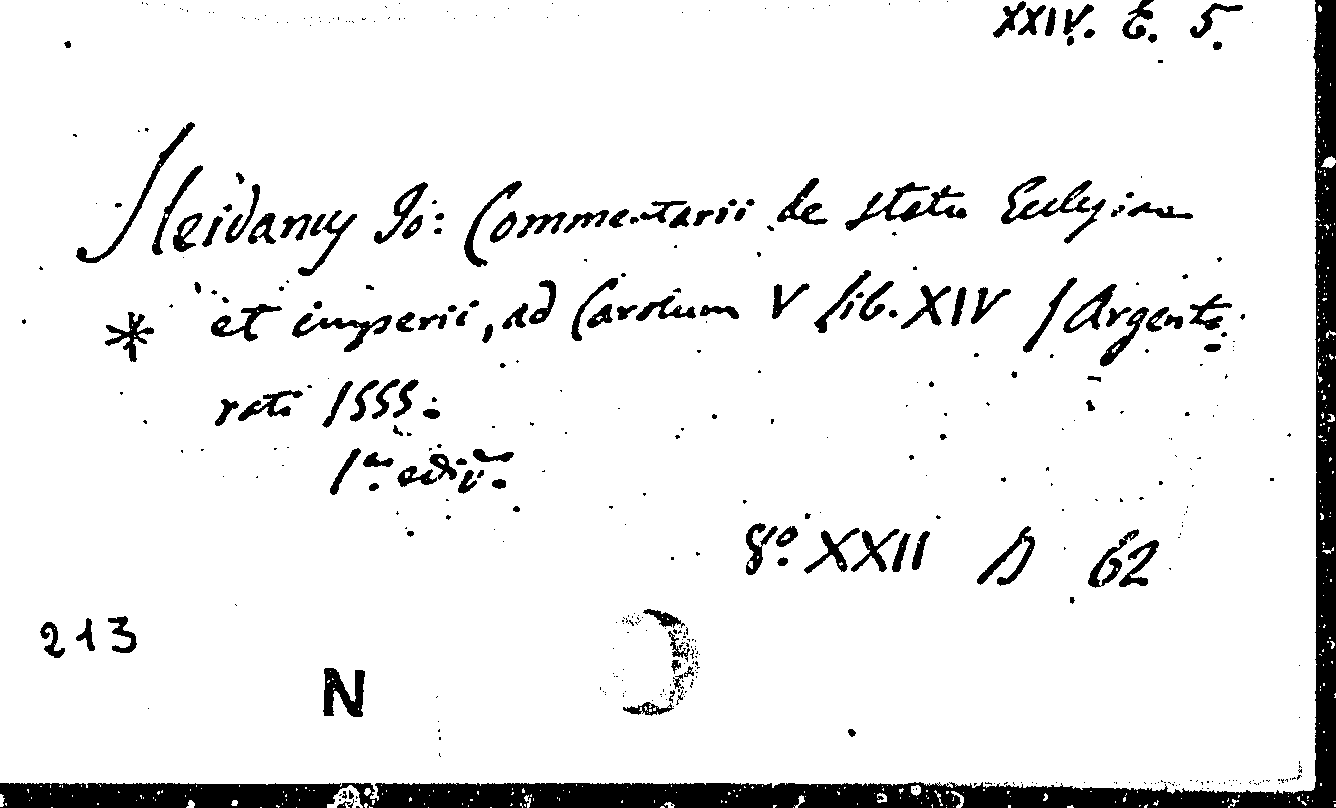 XXIV. E. 5.
Sleidanus Jo: Commentarii de statu Ecclesiae
et imperii, ad Carolum V lib. XIV / Argento
rati 1555.
1.a ediz.
8.o XXII D 62
213
N